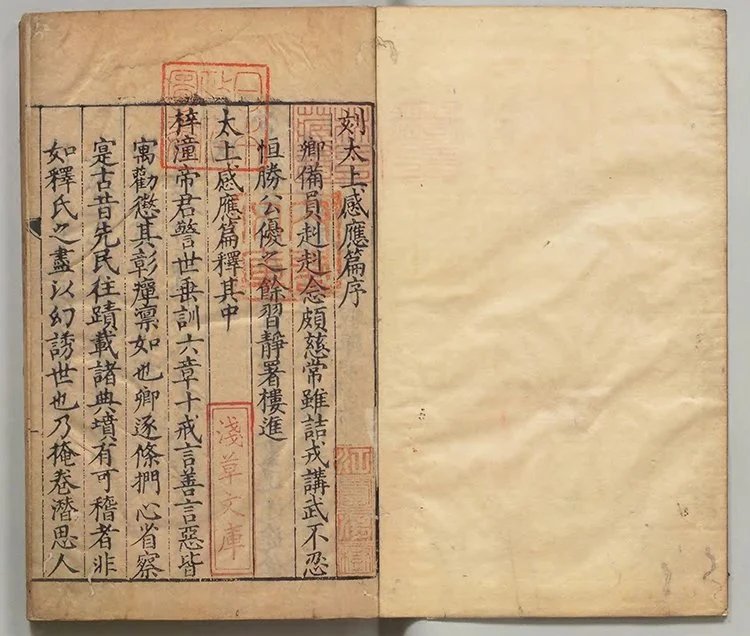 刻太上感應篇序
卿備員赳赳念頗慈常雖詰戎講武不忍
恒勝公優之餘習靜署樓進
太上感應篇釋其中
梓潼帝君警世垂訓六章十戒言善言惡皆
寓勸懲其彰癉禀如也卿逐條捫心省察
寔古昔先民往蹟載諸典墳有可稽者非
如釋氏之盡以幻誘世也乃掩卷潛思人
淺草文庫